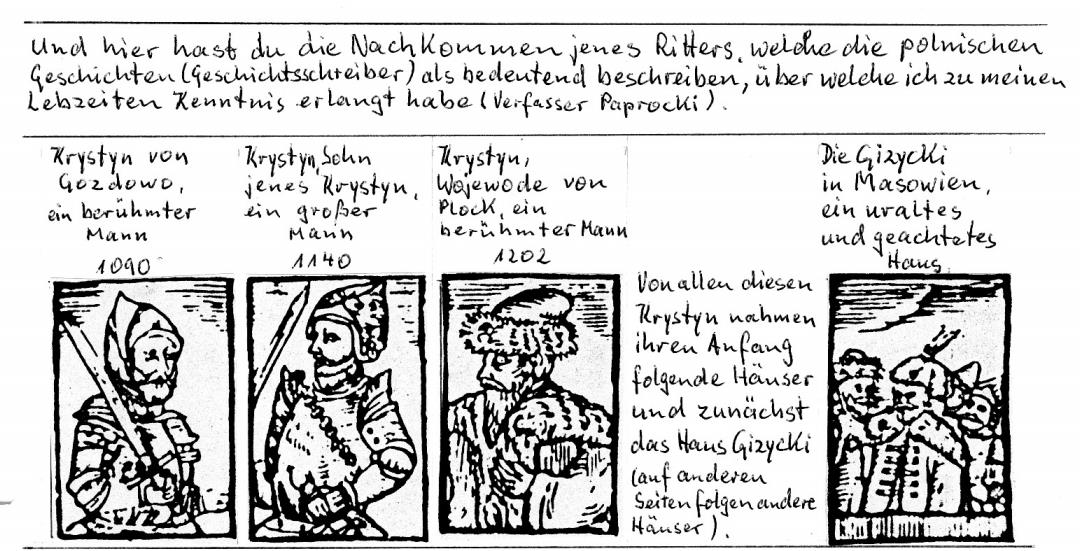 Und hier hast du die Nachkommen jenes Ritters, welche die polnischen
Geschichten (Geschichtsschreiber) als bedeutend beschreiben, über welche ich zu meinen
Lebzeiten Kenntnis erlangt habe (Verfasser Paprocki).
Krystyn von
Gozdowo,
ein berühmter
Mann
1090
Krystyn, Sohn
jenes Krystyn,
ein großer
Mann
1140
Krystyn,
Wojewode von
Plock, ein
berühmter Mann
1202
Von allen diesen
Krystyn nahmen
ihren Anfang
folgende Häuser
und zunächst
das Haus Gizycki
(auf anderen
Seiten folgen andere
Häuser).
Die Gizycki
in Masowien,
ein uraltes
und geachtetes
Haus